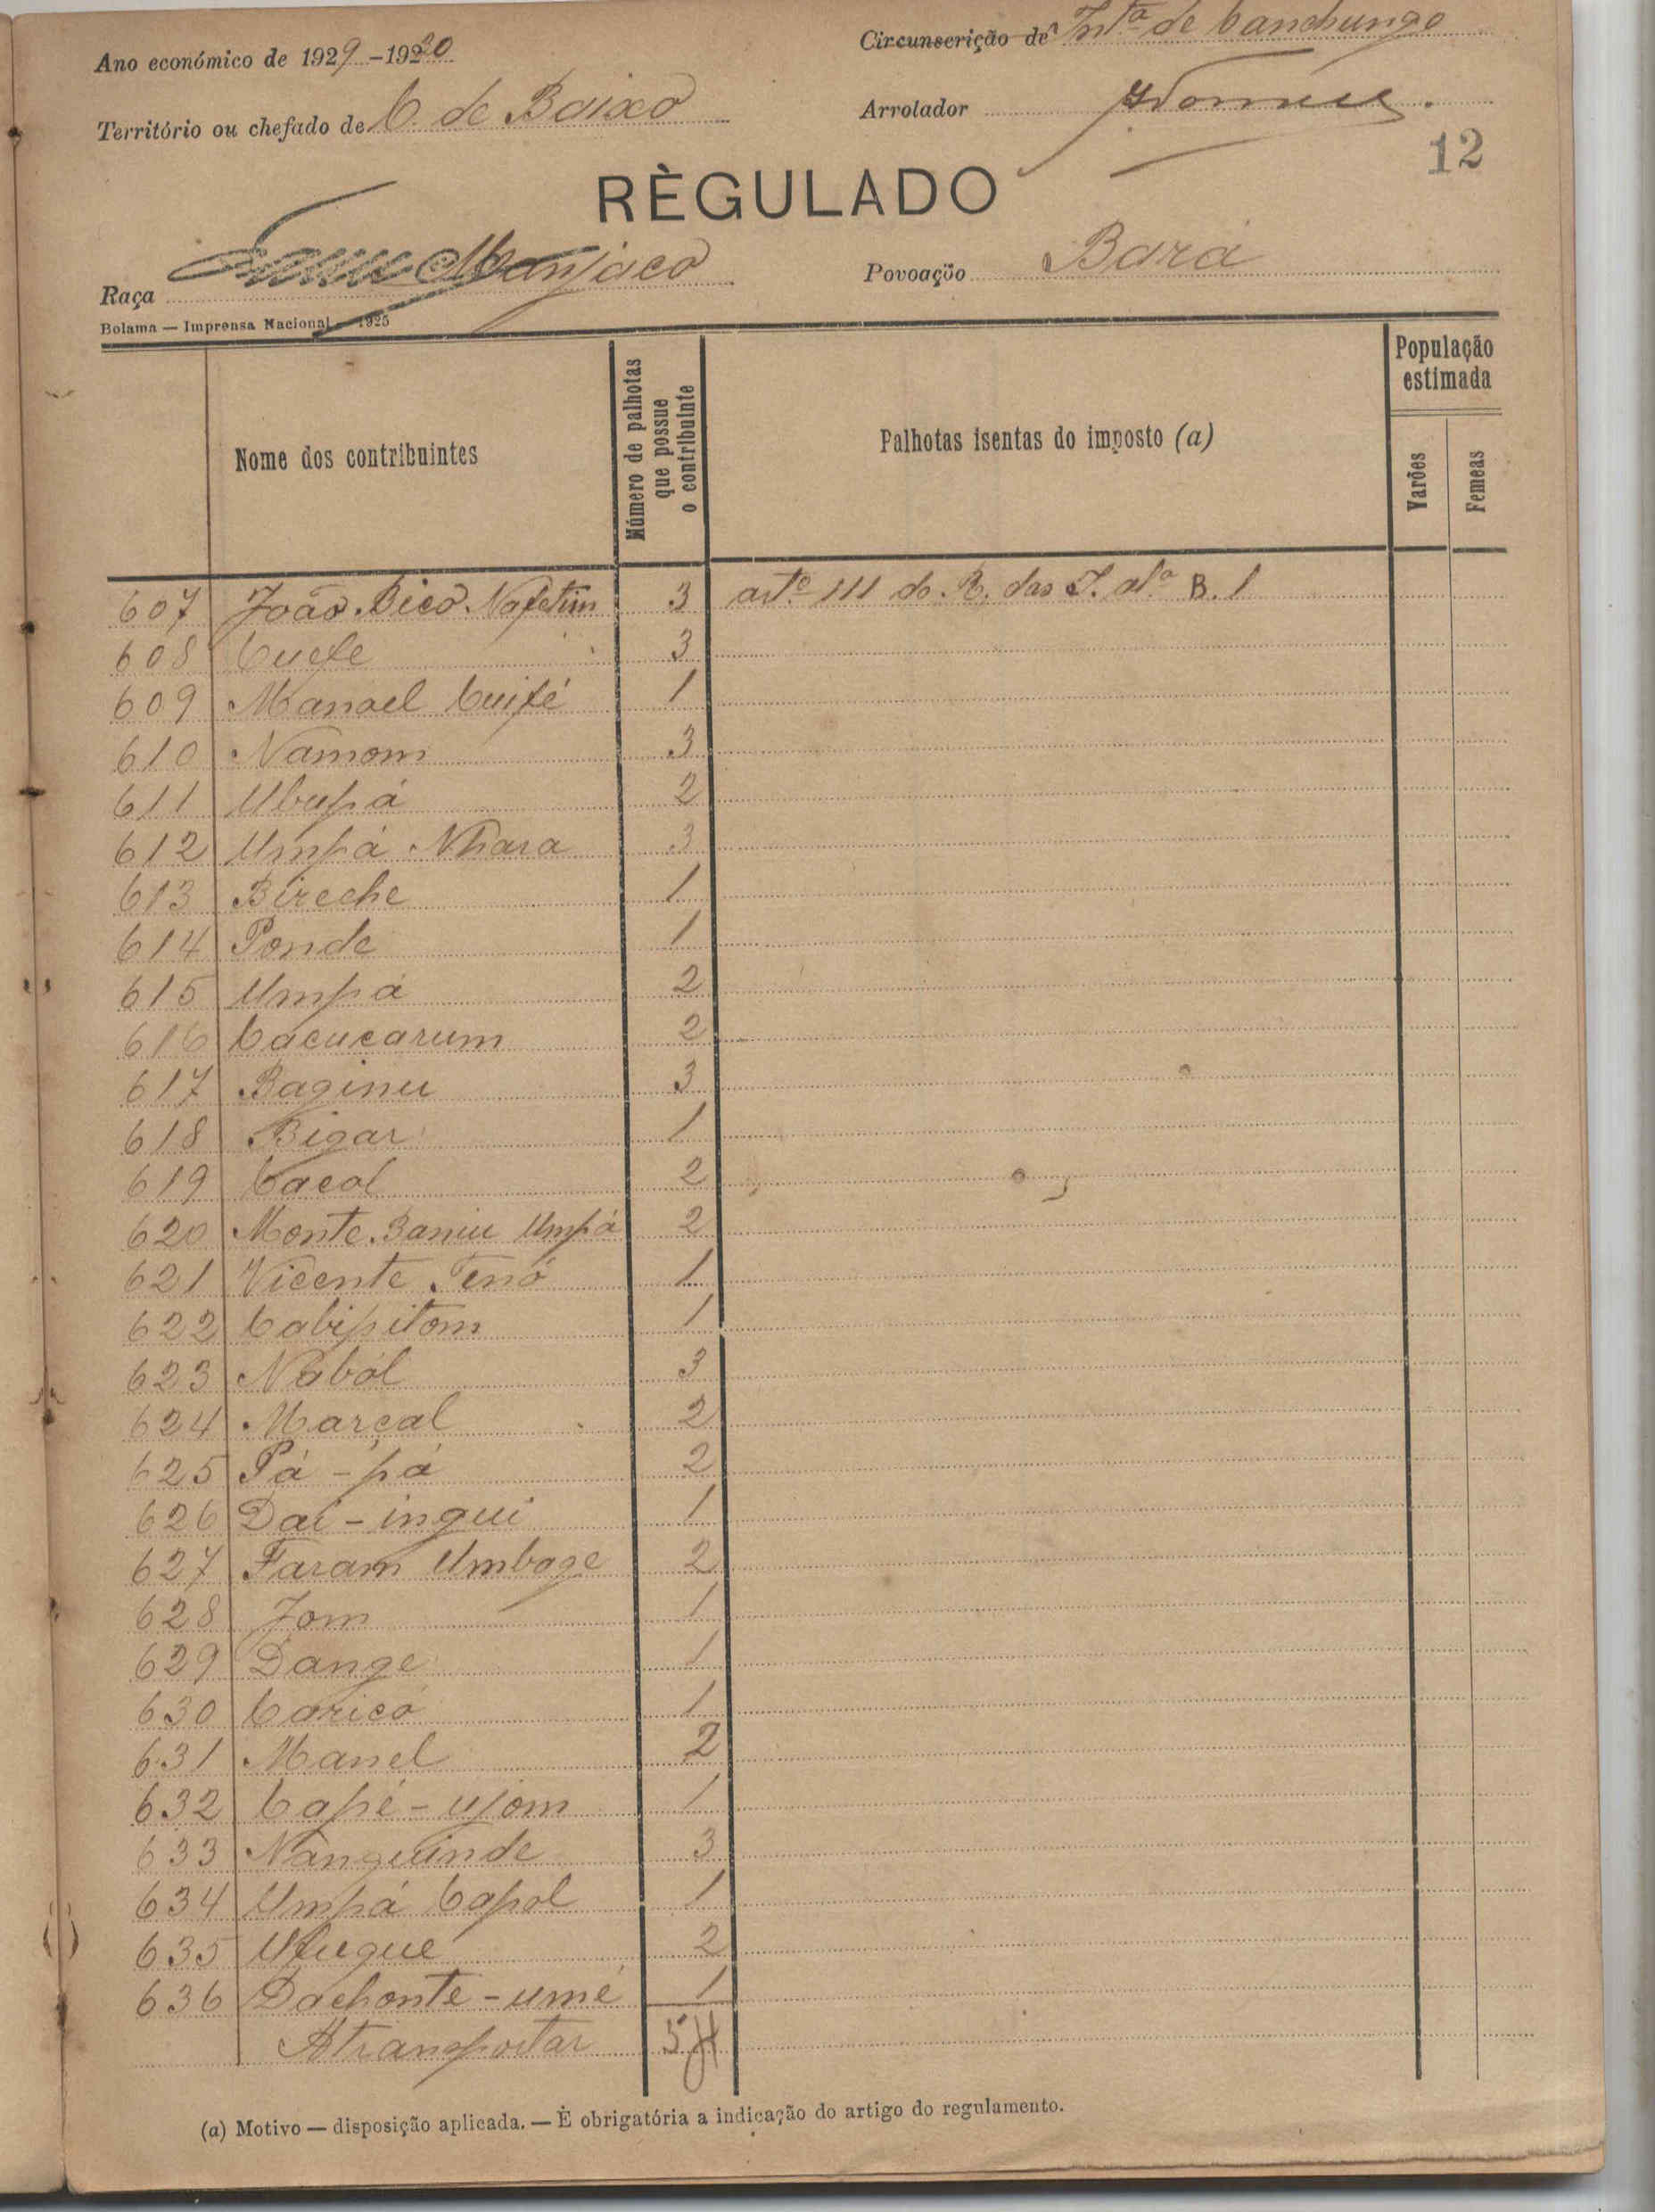 Ano económico de 1929-1930
Circunscrição de Intª de Canchungo
Território ou chefado de C. de Baixo
Arrolador
12
RÈGULADO
Raça Manjaco
Povoação Bará
Bolama — Imprensa Nacional — 1925
Nome dos contribuintes
Número de palhotas que possue o contribuinte
Palhotas isentas do imposto (a)
População estimada
Varões
Femeas
607 João Bico Nafetim 3 artº 111 do R. das I. alª B. 1
608 Cuefe 3
609 Manoel Cuifé 1
610 Namom 3
611 Ubupá 2
612 Umpá Nhara 3
613 Bireche 1
614 Ponde 1
615 Umpá 2
616 Cacucarum 2
617 Baginu 3
618 Bigar 1
619 Cacol 2
620 Monte Baniu Umpá 2
621 Vicente Tenó 1
622 Cabipitom 1
623 Naból 3
624 Marçal 2
625 Pá-pá 2
626 Dai-ingui 1
627 Faram Umboge 2
628 Jom 1
629 Dange 1
630 Caricó 1
631 Manel 2
632 Capé-ujom 1
633 Nanguinde 3
634 Umpá Capol 1
635 Ufugué 2
636 Dachonte-umé 1
A transportar 54
(a) Motivo — disposição aplicada. — È obrigatória a indicação do artigo do regulamento.